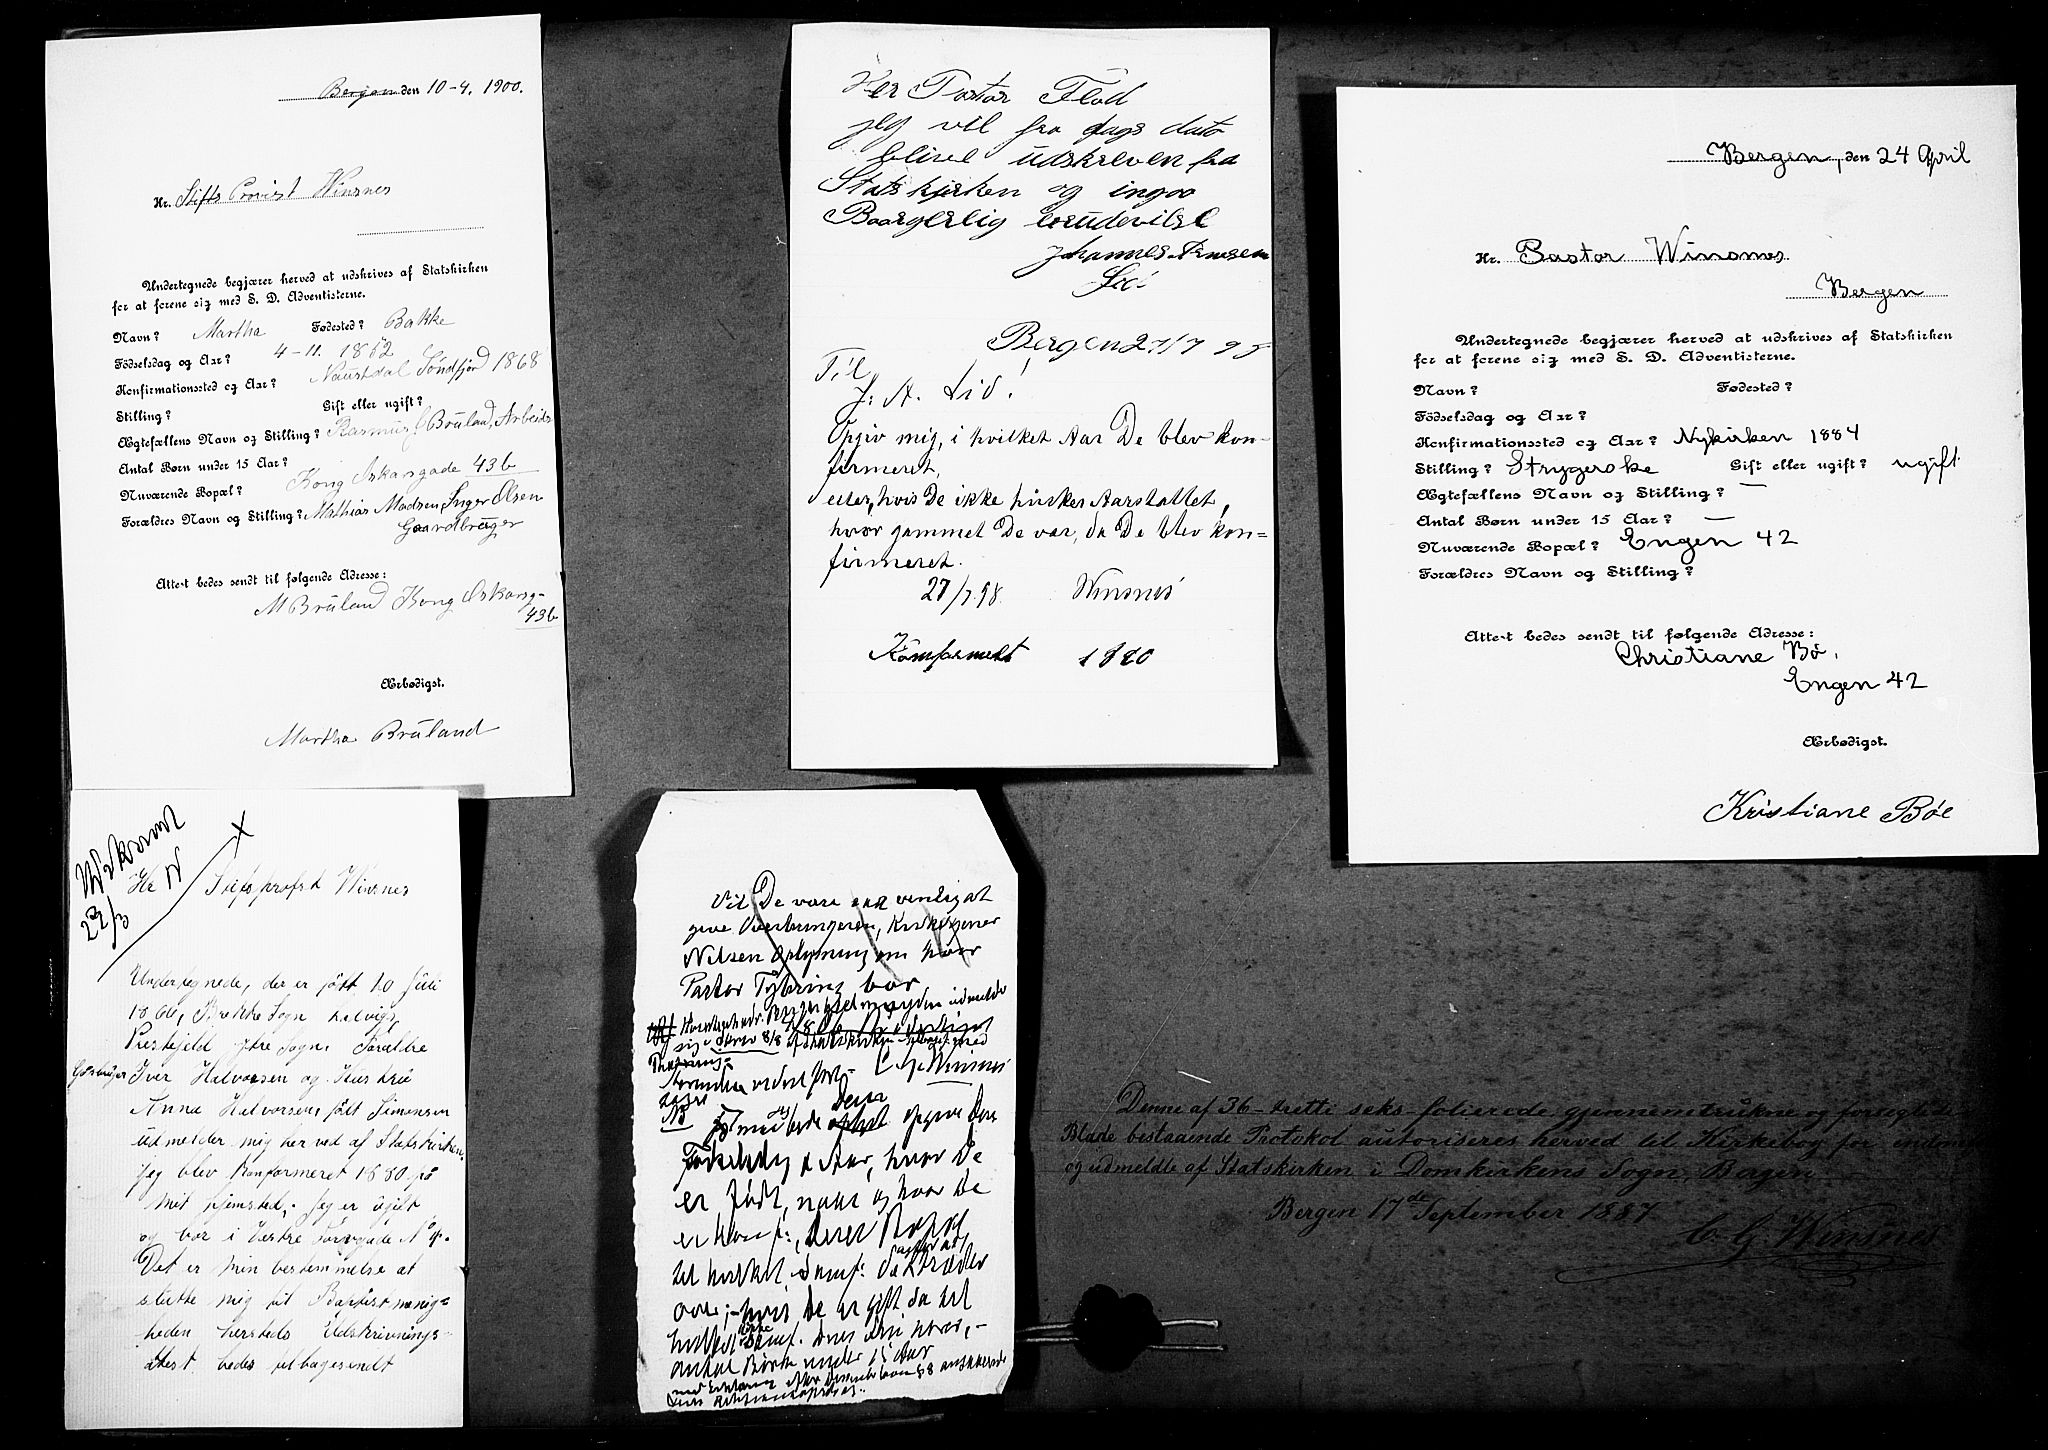 Bergen den 10-4. 1900.
Hr. Stifts Provst Winsnes
Undertegnede begjærer herved at udskrives af Statskirken
for at forene sig med S. D. Adventisterne.
Navn? Martha Fødested? Bakke
Födselsdag og Aar? 4-11. 1852
Konfirmationssted og Aar? Naustdal Söndfjord 1868
Stilling? Gift eller ugift?
Ægtefællens Navn og Stilling? Rasmus Bruland, Arbeids
Antal Børn under 15 Aar?
Nuværende Bopæl? Kong Oskarsgade 43b
Forældres Navn og Stilling? Mathias Madsen, Inger Olsen
Gaardbruger
Attest bedes sendt til følgende Adresse:
M Bruland Kong Oskarsg-
43b
Ærbødigst.
Martha Bruland
Her Pastor Flod
jeg vil fra dags dato
blive udskreven fra
Statskirken og ingoo
Boorgerlig
Johannes Arnesen
Bergen 27/7 98
Til
J. A. Lid!
Opgiv mig, i hvilket Aar De blev kon-
firmeret,
eller, hvis De ikke husker Aarstallet,
hvor gammel De var, da De blev kon=
firmeret.
27/7.98. Winsnes
Komformert 1880
Bergen, den 24 April
Hr. Pastor Winsnes
Bergen
Undertegnede begjærer herved at udskrives af Statskirken
for at forene sig med S. D. Adventisterne.
Navn? Fødested?
Födselsdag og Aar?
Konfirmationssted og Aar? Nykirken 1884
Stilling? Strygerske Gift eller ugift? ugift
Ægtefællens Navn og Stilling? —
Antal Børn under 15 Aar? —
Nuværende Bopæl? Engen 42
Forældres Navn og Stilling?
Attest bedes sendt til følgende Adresse:
Christiane Bö,
Engen 42
Ærbødigst.
Kristiane Böe
22/3
X
Hr Stifsprofst Winsnes
Undertegnede, der er født 10 Juli
Brekke Sogn
Prestejeld Ytre Sogn. Forældre
Iver Halvorsen og Hustru
Anna Halvorsen, født Simonsen
udmelder mig herved af Statskirken.
Jeg blev konformeret 1880 på
mit hjemsted,- Jeg er ugift
og bor i
Det er min bestemmelse at
slutte mig til Baptistmenig=
heden hersteds Udskrivnings-
attest bedes tilbagesendt
Vil De være saa venlig at
give Overbringeren, Kirketjener
Nilsen Oplysning om hvor
Pastor Tybring bor
C. G. Winsnes
NB
opgive Deres
Fødselsdag & Aar, hvor De
er født, naar og hvor De
er konf:, Deres Bopæl
til hvilket Samf: De træder
over;- hvis De er gift da til
hvilket Samf. Deres
antal Børn under 15 Aar
Denne af 36 - tretti seks - folierede, gjennemtrukne og forseglede
Blade bestaaende Protokol autoriseres herved til Kirkebog for indm
og udmeldte af Statskirken i Domkirkens Sogn, Bergen
Bergen 17de September 1887
C. G. Winsnes